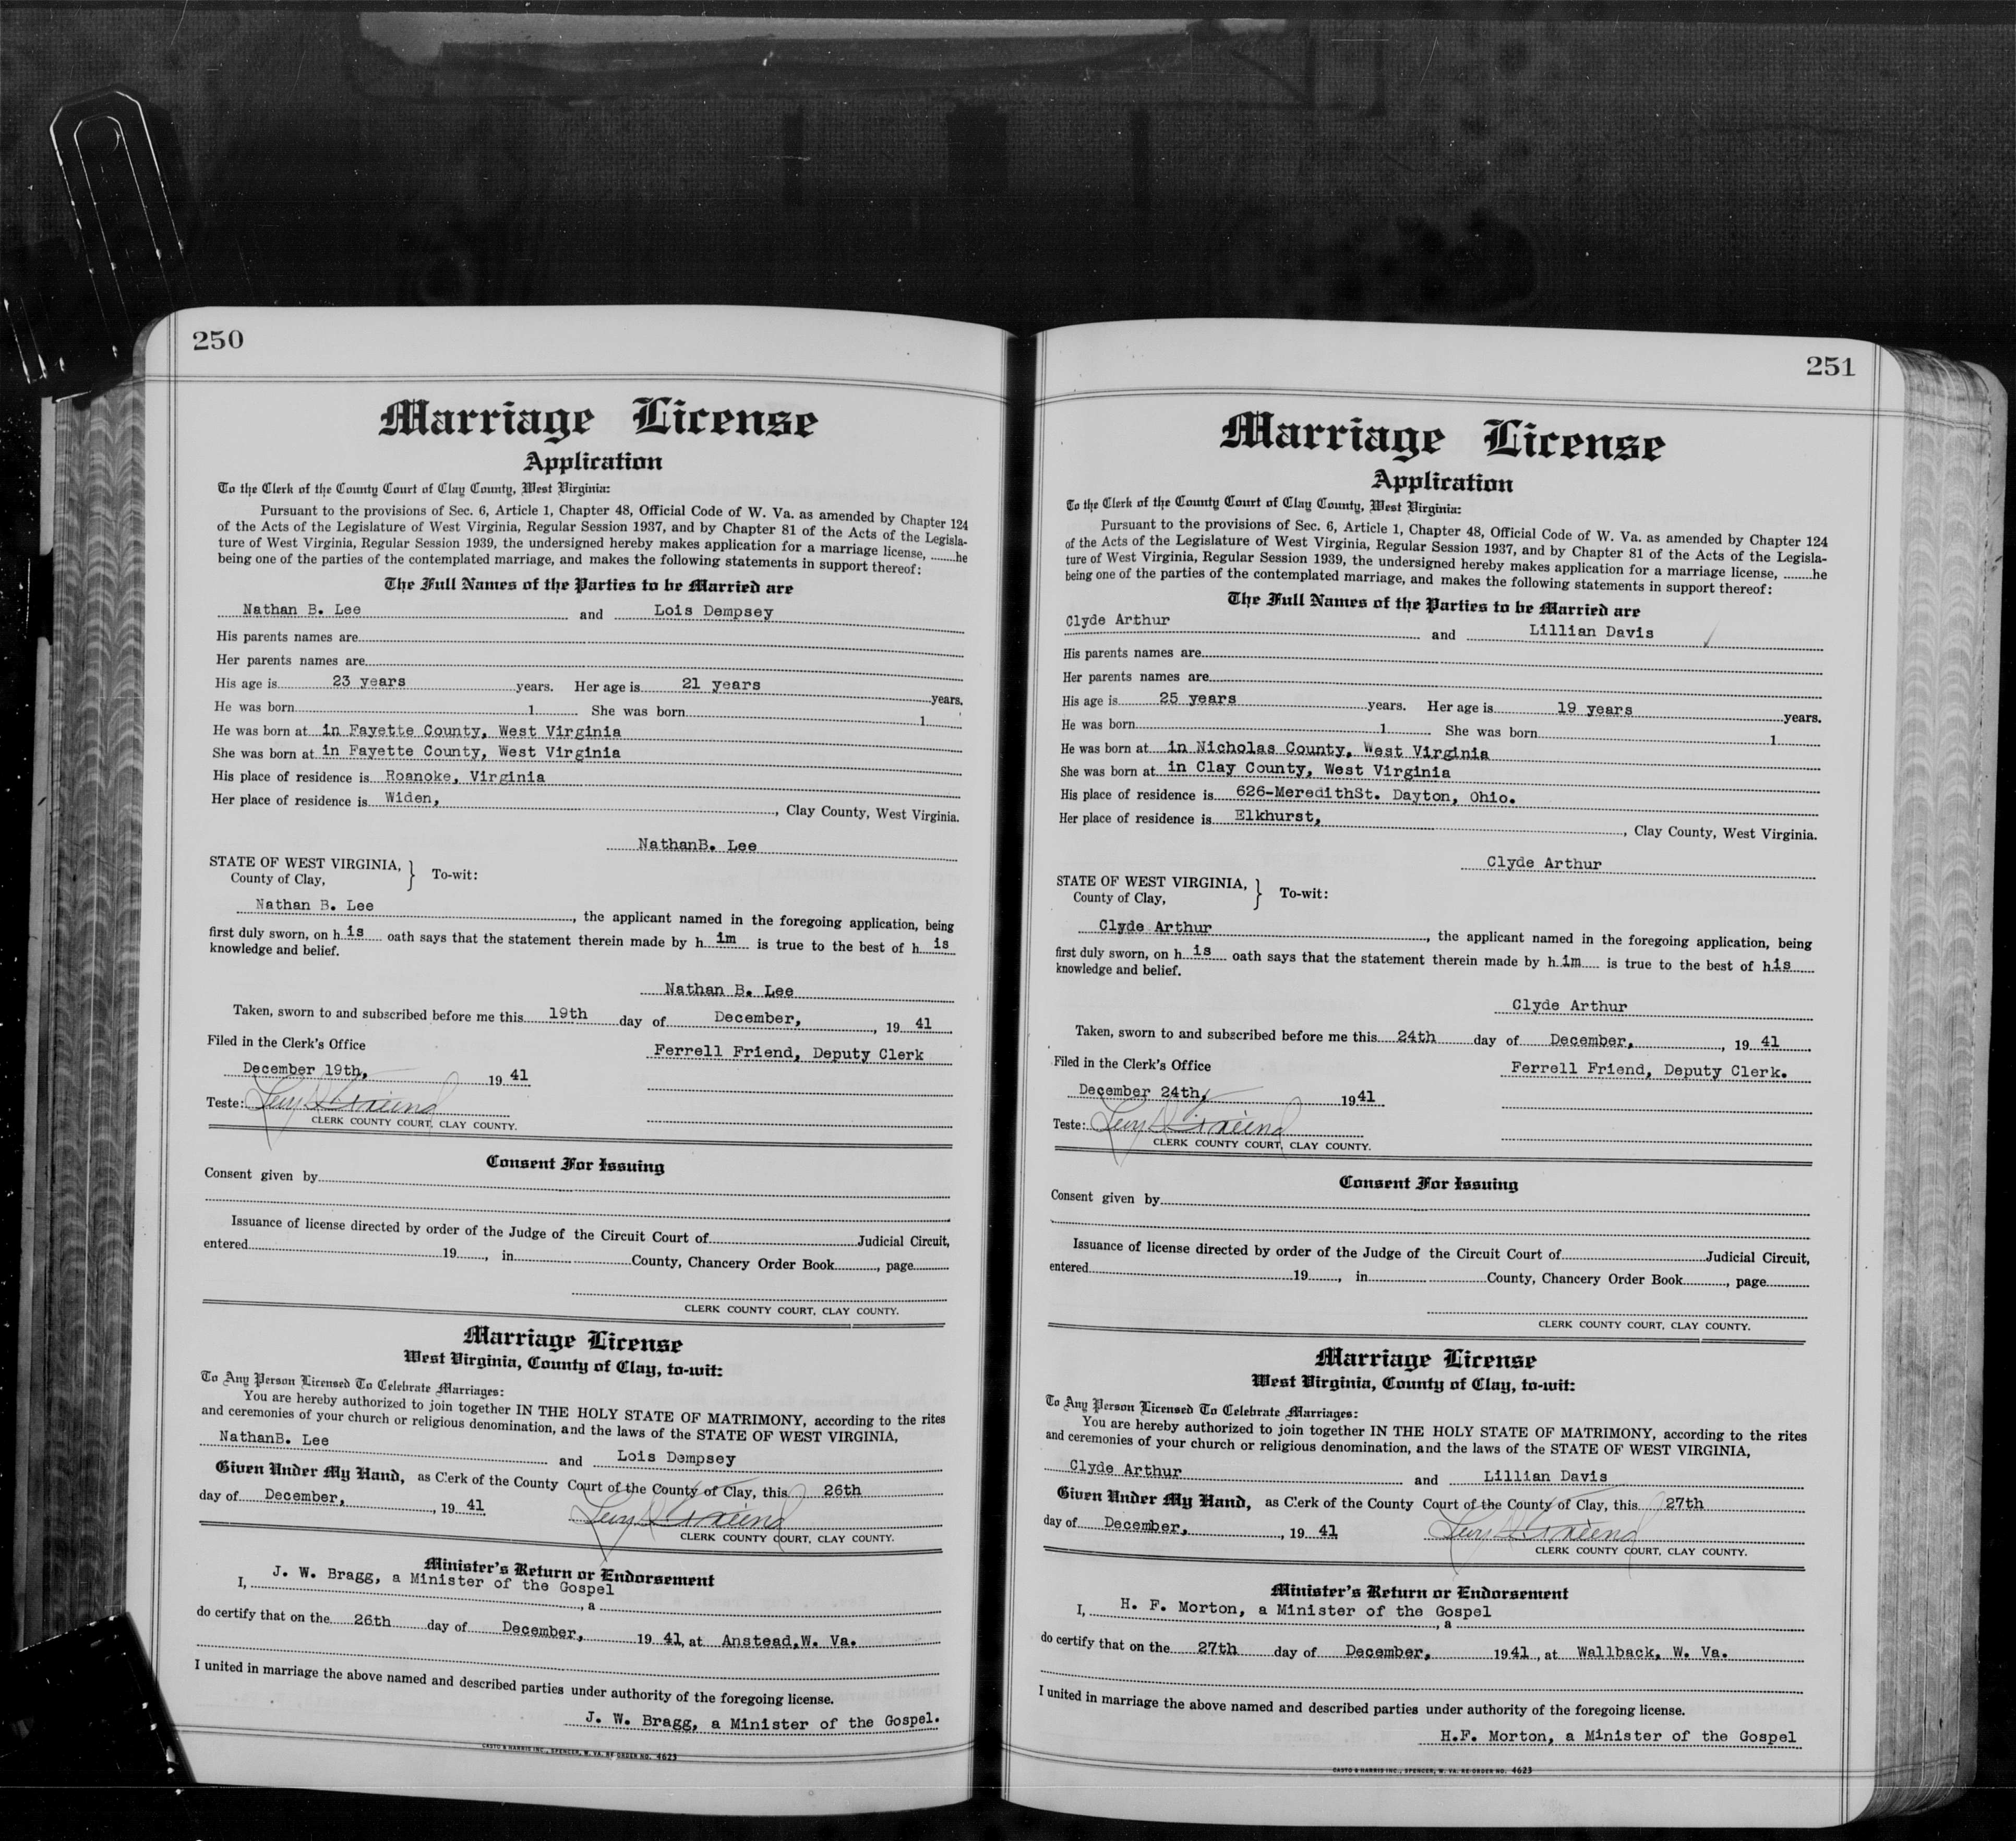 250
Marriage License
Application
To the Clerk of the County Court of Clay County, West Virginia:
Pursuant to the provisions of Sec. 6, Article 1, Chapter 48, Official Code of W. Va. as amended by Chapter 124
of the Acts of the Legislature of West Virginia, Regular Session 1937, and by Chapter 81 of the Acts of the Legisla-
ture of West Virginia, Regular Session 1939, the undersigned hereby makes application for a marriage license, ........he
being one of the parties of the contemplated marriage, and makes the following statements in support thereof:
The Full Names of the Parties to be Married are
Nathan B. Lee and Lois Dempsey
His parents names are
Her parents names are
His age is 23 years years. Her age is 21 years years.
He was born 1 She was born 1
He was born at in Fayette County, West Virginia
She was born at in Fayette County, West Virginia
His place of residence is Roanoke, Virginia
Her place of residence is Widen, , Clay County, West Virginia.
NathanB. Lee
STATE OF WEST VIRGINIA,
County of Clay, } To-wit:
Nathan B. Lee , the applicant named in the foregoing application, being
first duly sworn, on h is oath says that the statement therein made by h im is true to the best of h is
knowledge and belief.
Nathan B. Lee
Taken, sworn to and subscribed before me this 19th day of December, , 19 41
Filed in the Clerk's Office
Ferrell Friend, Deputy Clerk
December 19th, 19 41
Teste: Levy D. Friend
CLERK COUNTY COURT, CLAY COUNTY.
Consent For Issuing
Consent given by
Issuance of license directed by order of the Judge of the Circuit Court of Judicial Circuit,
entered 19 , in County, Chancery Order Book , page
CLERK COUNTY COURT, CLAY COUNTY.
Marriage License
West Virginia, County of Clay, to-wit:
To Any Person Licensed To Celebrate Marriages:
You are hereby authorized to join together IN THE HOLY STATE OF MATRIMONY, according to the rites
and ceremonies of your church or religious denomination, and the laws of the STATE OF WEST VIRGINIA,
NathanB. Lee and Lois Dempsey
Given Under My Hand, as Clerk of the County Court of the County of Clay, this 26th
day of December, , 19 41 Levy D. Friend
CLERK COUNTY COURT, CLAY COUNTY.
Minister's Return or Endorsement
I, J. W. Bragg, a Minister of the Gospel , a
do certify that on the 26th day of December, 19 41, at Anstead,W. Va.
I united in marriage the above named and described parties under authority of the foregoing license.
J. W. Bragg, a Minister of the Gospel.
CASTO & HARRIS INC., SPENCER, W. VA. RE ORDER NO. 4623
251
Marriage License
Application
To the Clerk of the County Court of Clay County, West Virginia:
Pursuant to the provisions of Sec. 6, Article 1, Chapter 48, Official Code of W. Va. as amended by Chapter 124
of the Acts of the Legislature of West Virginia, Regular Session 1937, and by Chapter 81 of the Acts of the Legisla-
ture of West Virginia, Regular Session 1939, the undersigned hereby makes application for a marriage license, ........he
being one of the parties of the contemplated marriage, and makes the following statements in support thereof:
The Full Names of the Parties to be Married are
Clyde Arthur and Lillian Davis
His parents names are
Her parents names are
His age is 25 years years. Her age is 19 years years.
He was born 1 She was born 1
He was born at in Nicholas County, West Virginia
She was born at in Clay County, West Virginia
His place of residence is 626-MeredithSt. Dayton, Ohio.
Her place of residence is Elkhurst, , Clay County, West Virginia.
Clyde Arthur
STATE OF WEST VIRGINIA,
County of Clay, } To-wit:
Clyde Arthur , the applicant named in the foregoing application, being
first duly sworn, on h is oath says that the statement therein made by h im is true to the best of his
knowledge and belief.
Clyde Arthur
Taken, sworn to and subscribed before me this 24th day of December, , 19 41
Filed in the Clerk's Office
Ferrell Friend, Deputy Clerk.
December 24th, 1941
Teste: Levy D. Friend
CLERK COUNTY COURT, CLAY COUNTY.
Consent For Issuing
Consent given by
Issuance of license directed by order of the Judge of the Circuit Court of Judicial Circuit,
entered 19 , in County, Chancery Order Book , page
CLERK COUNTY COURT, CLAY COUNTY.
Marriage License
West Virginia, County of Clay, to-wit:
To Any Person Licensed To Celebrate Marriages:
You are hereby authorized to join together IN THE HOLY STATE OF MATRIMONY, according to the rites
and ceremonies of your church or religious denomination, and the laws of the STATE OF WEST VIRGINIA,
Clyde Arthur and Lillian Davis
Given Under My Hand, as Clerk of the County Court of the County of Clay, this 27th
day of December, , 19 41 Levy D. Friend
CLERK COUNTY COURT, CLAY COUNTY.
Minister's Return or Endorsement
I, H. F. Morton, a Minister of the Gospel , a
do certify that on the 27th day of December, 1941 , at Wallback, W. Va.
I united in marriage the above named and described parties under authority of the foregoing license.
H.F. Morton, a Minister of the Gospel
CASTO & HARRIS INC., SPENCER, W. VA. RE ORDER NO. 4623